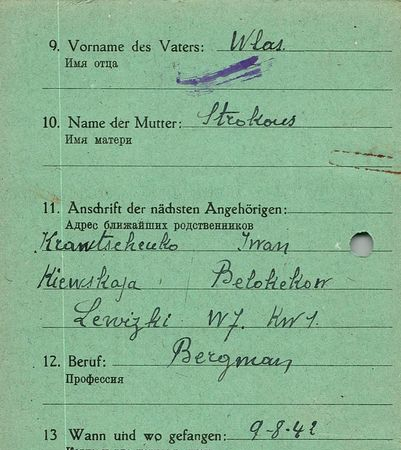 9. Vorname des Vaters: Wlas.
Имя отца
10. Name der Mutter: Strokous
Имя матери
11. Anschrift der nächsten Angehörigen:
Адрес ближайших родственников
Krawtschenko Iwan
Kiewskaja Belokekow
Lewizki W7. KW1.
12. Beruf: Bergman
Профессия
13 Wann und wo gefangen: 9-8-42